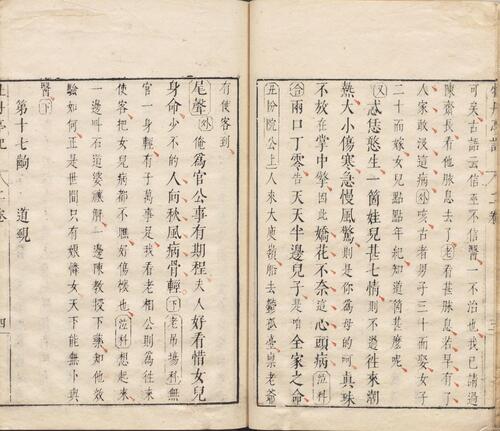 可矣古語云信巫不信醫一不治也我已請過
陳齋長看他脉息去了老看甚脉息若早有了
人家敢沒這病外咳古者男子三十而娶女子
二十而嫁女兒點點年紀知道箇甚麼呢
又忒恁憨生一箇娃兒甚七情則不過往來潮
熱大小傷寒急慢風驚則是你為母的呵真珠
不放在掌中擎因此嬌花不奈這心頭病泣科
合兩口丁零告天天半邊兒子是咱全家之命
丑扮院公上人來大庾嶺船去鬱孤臺稟老爺
有使客到
尾聲外俺為官公事有期程夫人好看惜女兒
身命少不的人向秋風病骨輕下老弔場科無
官一身輕有子萬事足我看老相公則為往來
使客把女兒病都不瞧好傷懷也泣科想起來
一邊呌石道婆禳解一邊陳教授下藥知他效
驗如何正是世間只有娘憐女天下能無卜與
醫下
第十七齣 道覡
四